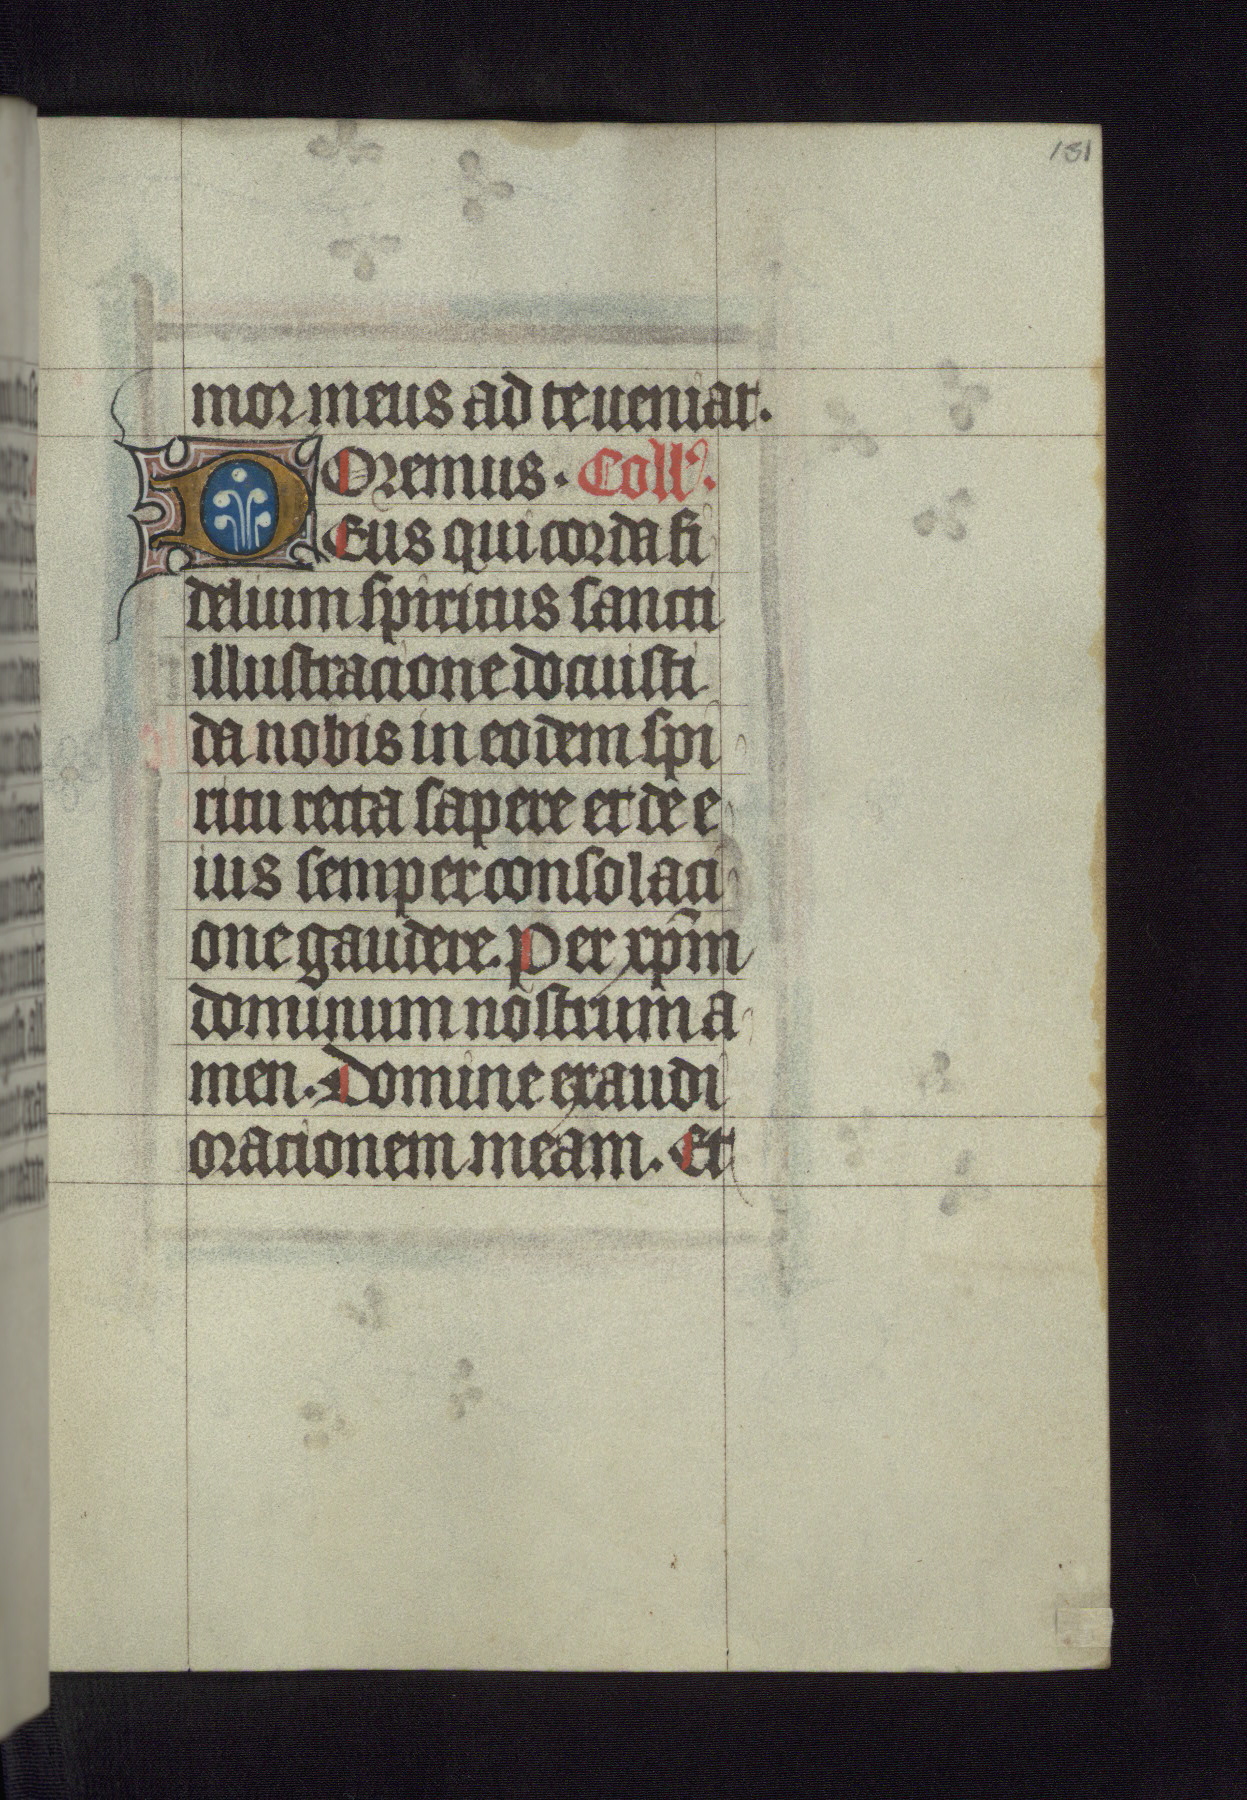 131
mor meus ad te ueniat.
Oremus. Coll'.
DEus qui corda fi
delium spiritus sancti
illustracione docuisti
da nobis in eodem spi
ritu recta sapere et de e
ius semper consolaci
one gaudere. Per xp̄m
dominum nostrum a
men. Domine exaudi
oracionem meam. Et